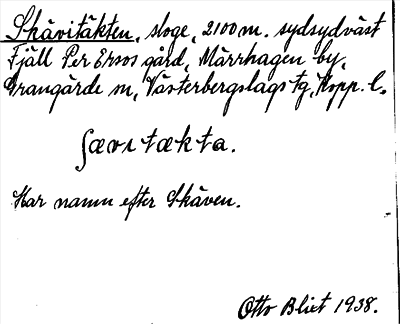 Skävitäkten, sloge, 2100 m. sydsydväst
Fjäll Per Ersos gård, Märrhagen by,
Grangärde sn, Västerbergslags tg, Kopp. l.
ʃævɩtækta.
Har namn efter Skäven.
Otto Blixt 1938.